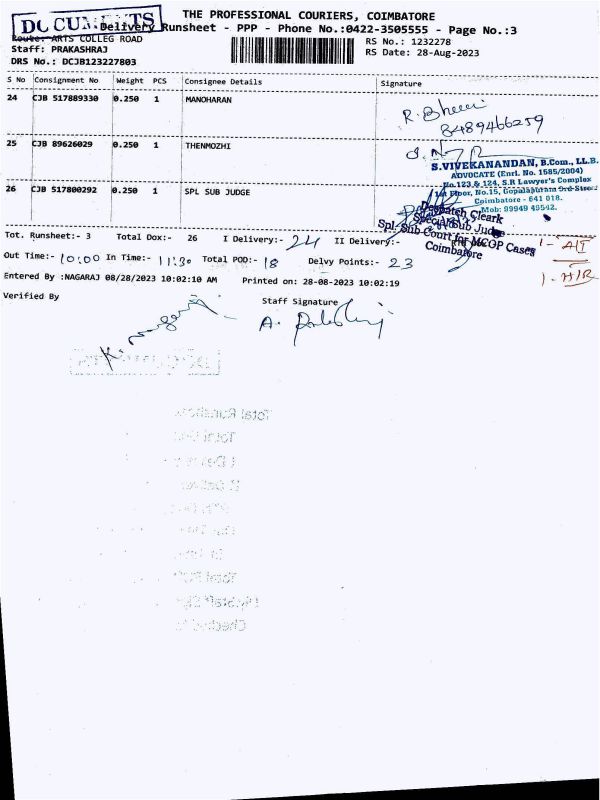 THE PROFESSIONAL COURIERS, COIMBATORE
DOCUMENTS
Delivery Runsheet - PPP - Phone No.:0422-3505555 - Page No.:3
Route: ARTS COLLEG ROAD
RS No.: 1232278
Staff: PRAKASHRAJ
RS Date: 28-Aug-2023
DRS No.: DCJB123227803
S No Consignment No Weight PCS Consignee Details Signature
24 CJB 517889330 0.250 1 MANOHARAN
8489466259
25 CJB 89626029 0.250 1 THENMOZHI
S.VIVEKANANDAN, B.Com., LL.B.
ADVOCATE (Enrl. No. 1585/2004)
No.123 & 124, S.R Lawyer's Complex
1st Floor, No.15, Gopalapuram 3rd Street
Coimbatore - 641 018.
Mob: 99949 49542.
26 CJB 517800292 0.250 1 SPL SUB JUDGE
Despatch Clerk
Special Sub Judge
Spl. Sub Court for MCOP Cases
Coimbatore
Tot. Runsheet:- 3 Total Dox:- 26 I Delivery:- 24 II Delivery:-
1 - A/T
Out Time:- 10:00 In Time:- 11:30 Total POD:- 18 Delvy Points:- 23
Entered By :NAGARAJ 08/28/2023 10:02:10 AM Printed on: 28-08-2023 10:02:19
Verified By Staff Signature